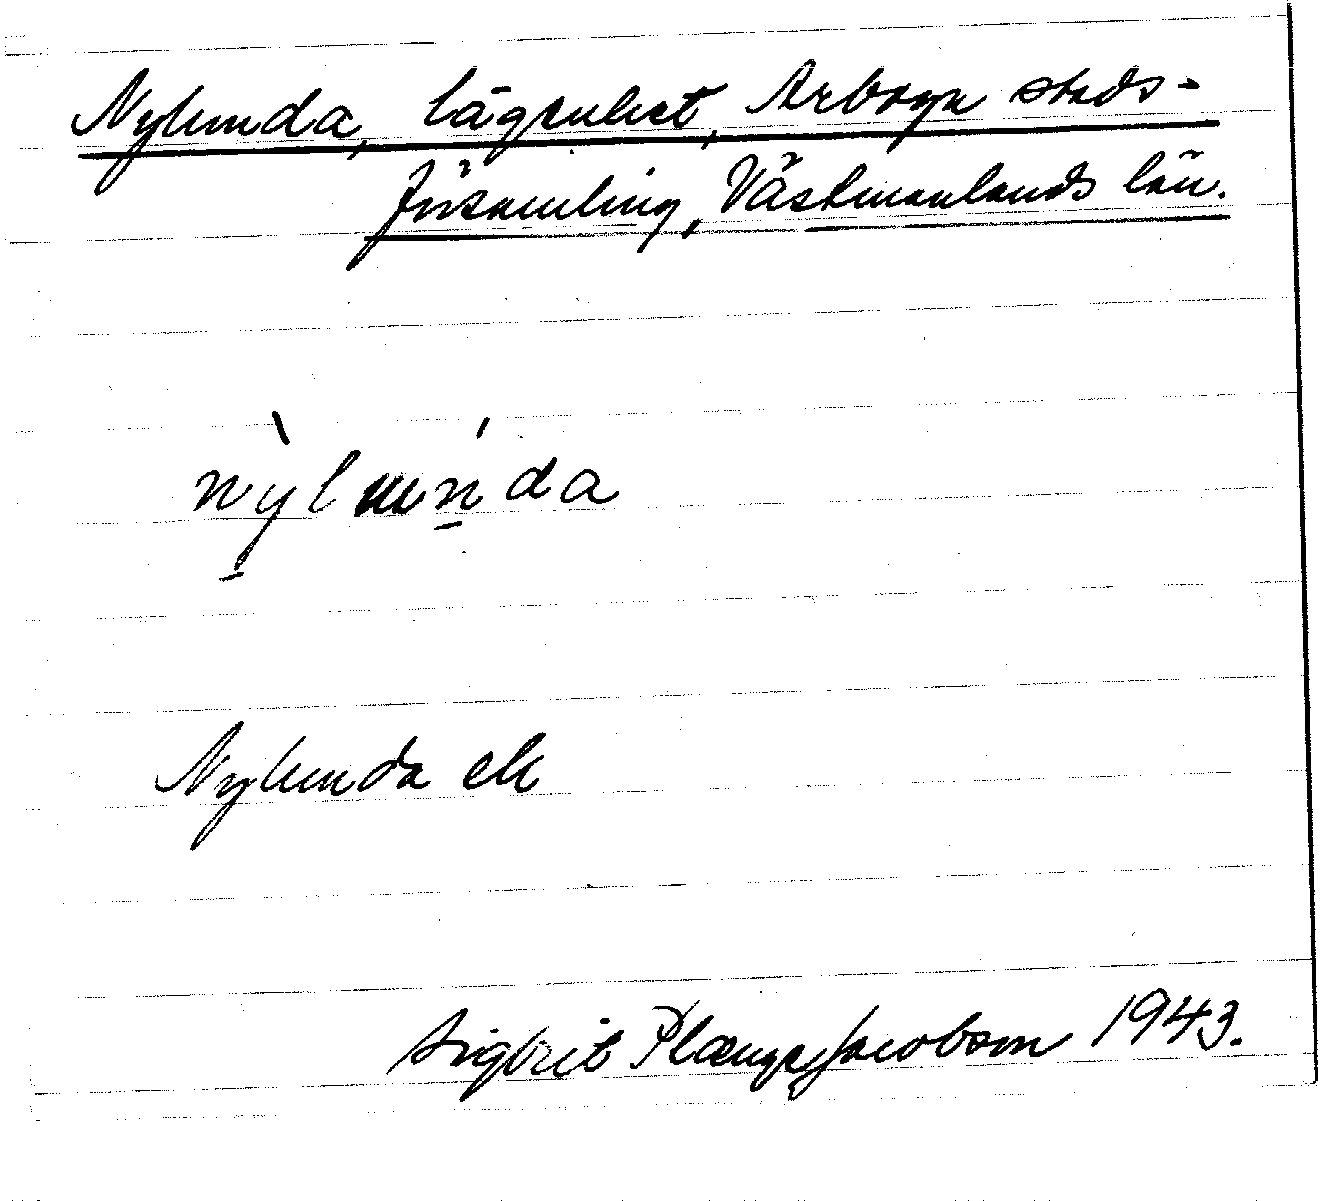 Nylunda, lägenhet, Arboga stads-
församling, Västmanlands län.
nylunda
Nylunda ek
Sigbrit Plænge Jacobson 1943.